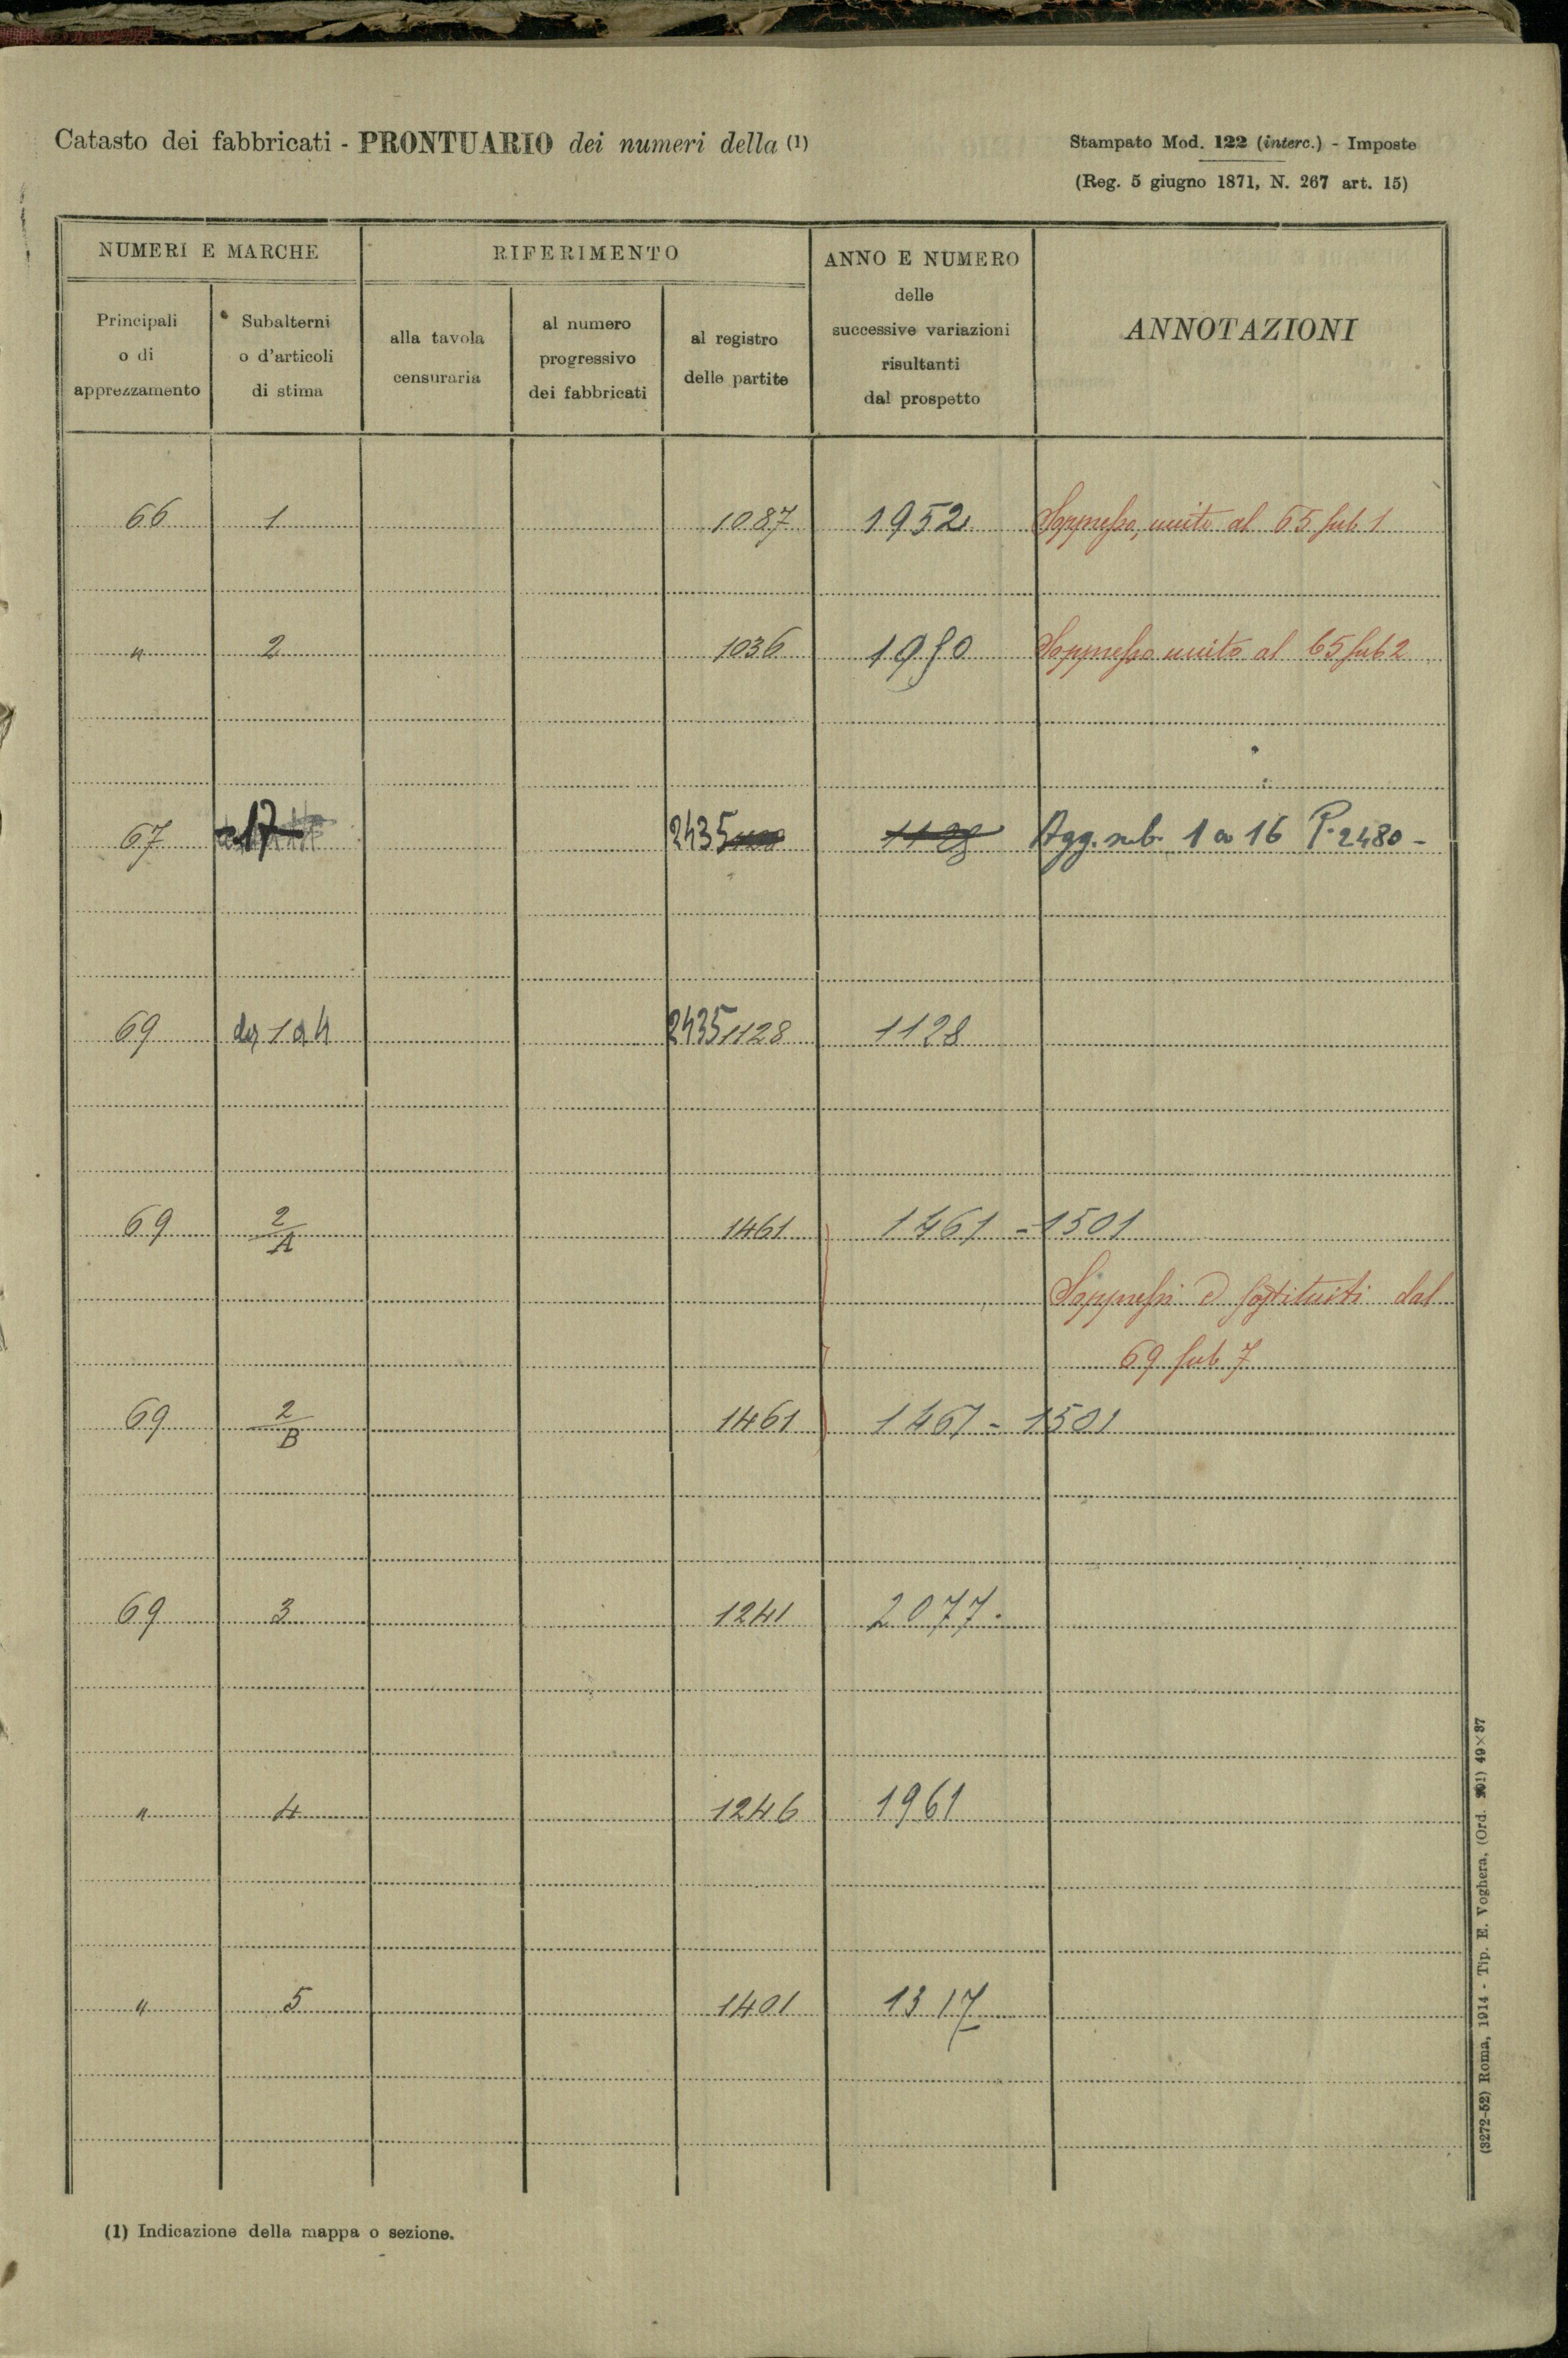 Catasto dei fabbricati - PRONTUARIO dei numeri della (1)
Stampato Mod. 122 (interc.) - Imposte
(Reg. 5 giugno 1871, N. 267 art. 15)
NUMERI E MARCHE
RIFERIMENTO
ANNO E NUMERO
delle
successive variazioni
risultanti
dal prospetto
ANNOTAZIONI
Principali
o di
apprezzamento
Subalterni
o d'articoli
di stima
alla tavola
censuraria
al numero
progressivo
dei fabbricati
al registro
delle partite
66 1 1087 1952 Soppresso, unito al 65 sub 1
" 2 1036 Soppresso unito al 65 sub 2
67 17 2435 Agg. sub. 1 a 16 P. 2480 -
69 da 1 a 4 2435 1128 1128
69 2/A 1461 1461 - 1501
Soppressi e sostituiti dal
69 sub 7
69 2/B 1461 1461 - 1501
69 3 1241 2077.
" 4 1246 1961
" 5 1401 1317
(1) Indicazione della mappa o sezione.
(3272-52) Roma, 1914 - Tip. E. Voghera, (Ord. 201) 49×37